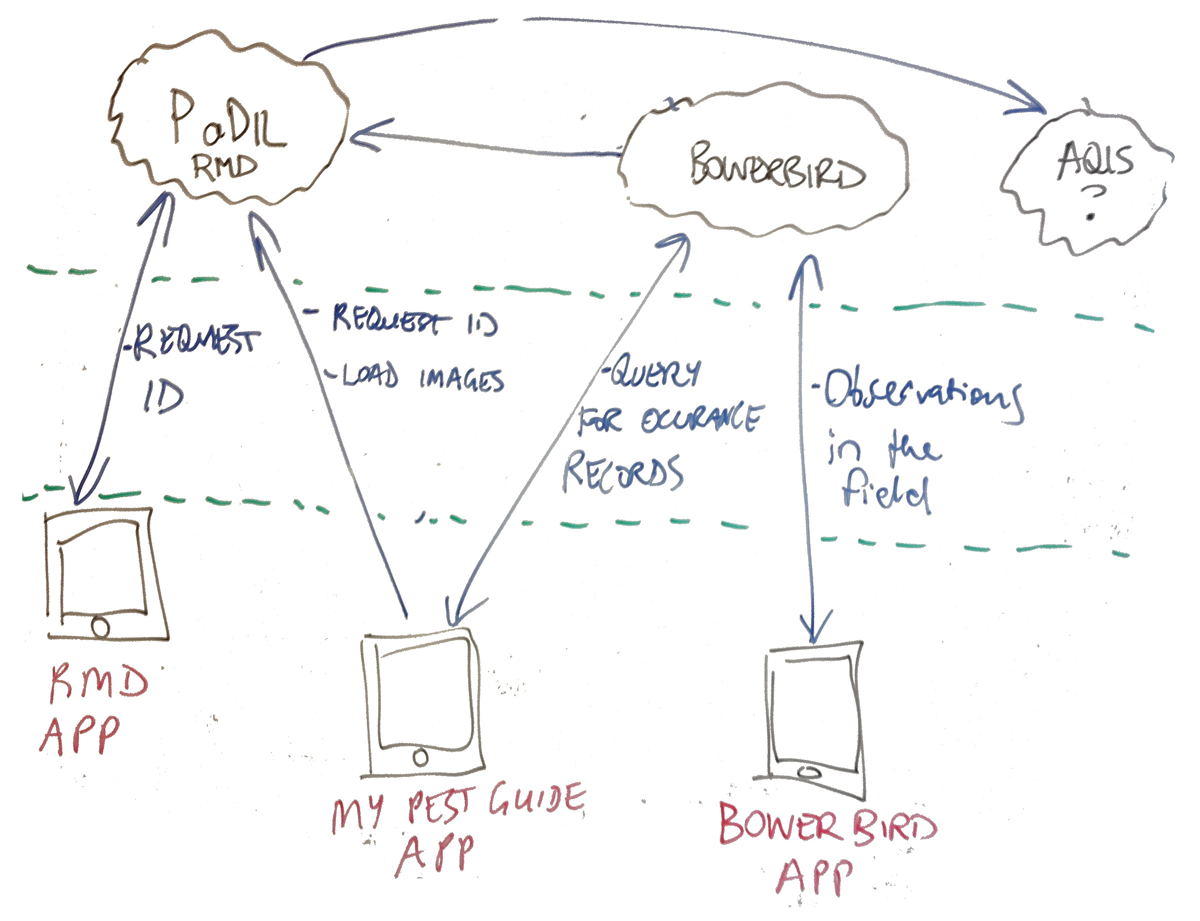 PaDIL
RMD
BOWERBIRD
AQIS
?
- REQUEST
ID
- REQUEST ID
- LOAD IMAGES
- QUERY
FOR OCCURANCE
RECORDS
- Observations
in the
field
RMD
APP
MY PEST GUIDE
APP
BOWER BIRD
APP